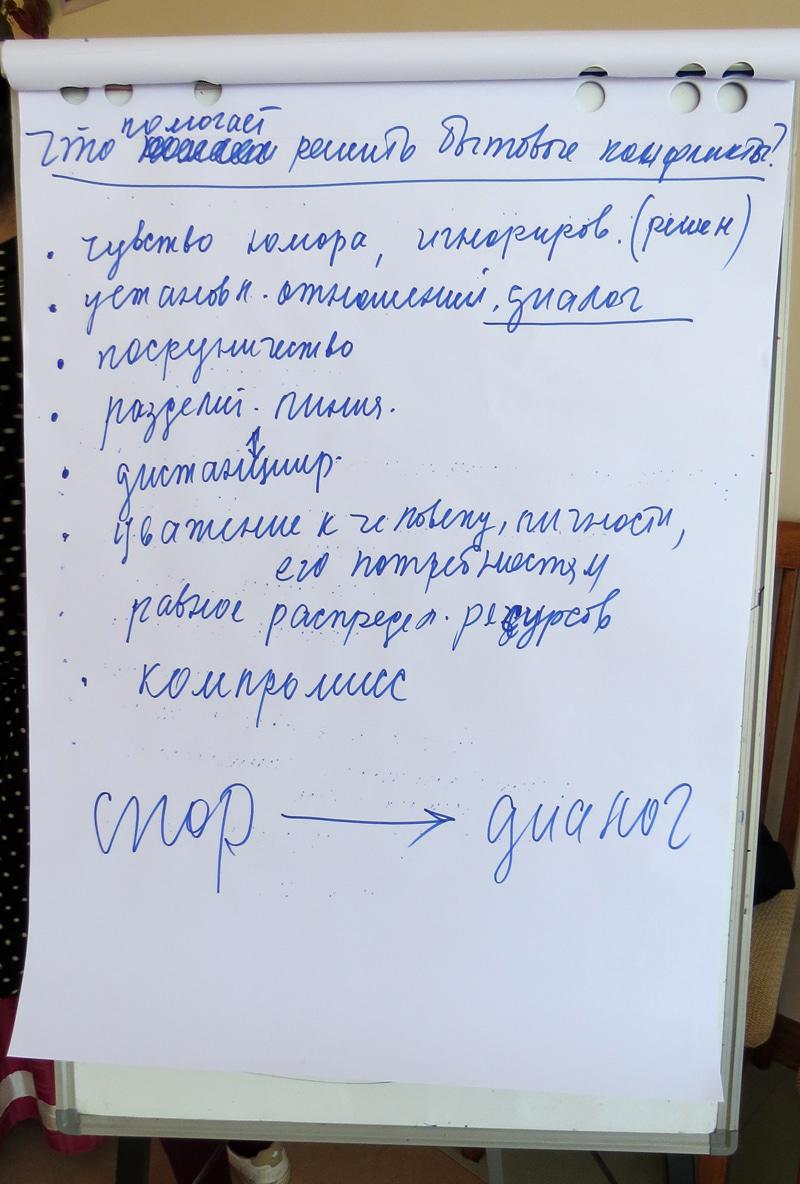 помогает
Что решить бытовые конфликты?
• чувство юмора, игнориров. (решен)
• установл. отношений, диалог
• посредничество
• разделит. линия.
• дистанциир.
• уважение к человеку, личности,
его потребностям
равное распредел. ресурсов
• компромисс
спор → диалог